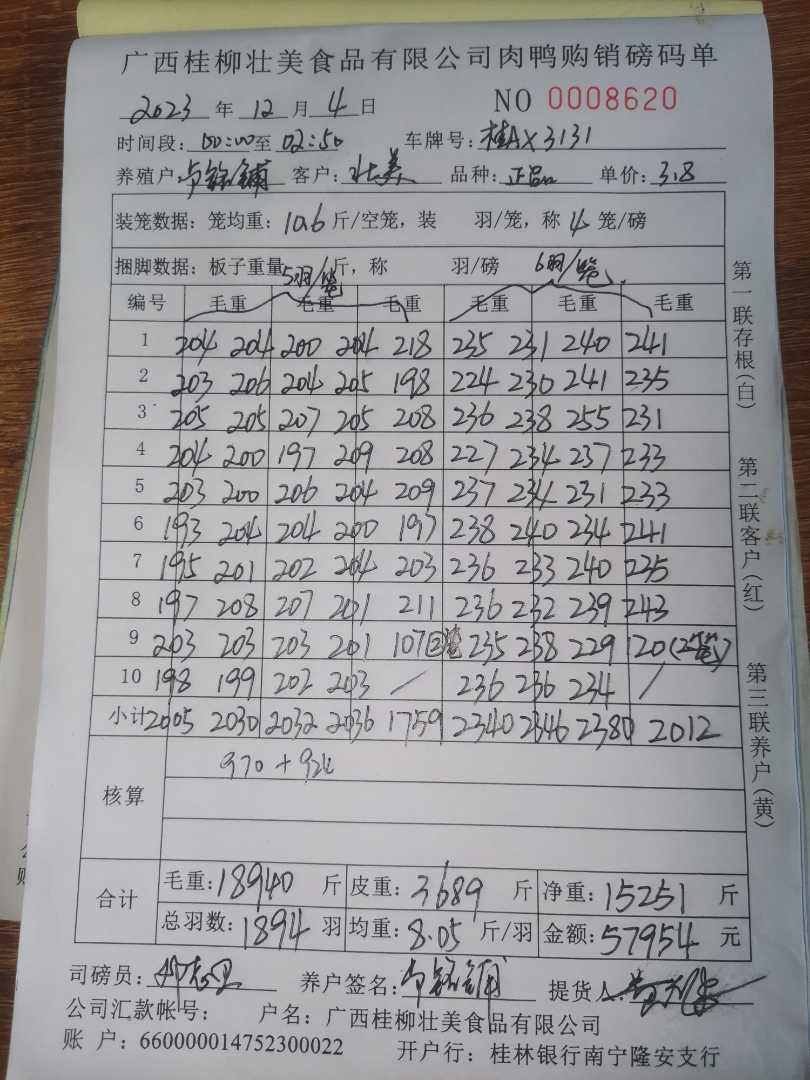 广西桂柳壮美食品有限公司肉鸭购销磅码单
2023 年 12 月 4 日 NO 0008620
时间段: 00:00 至 02:50 车牌号: 桂AX3131
养殖户 客户: 壮美 品种: 正品 单价: 3.8
装笼数据: 笼均重: 10.6 斤/空笼, 装 羽/笼, 称 4 笼/磅
捆脚数据: 板子重量 斤, 称 羽/磅
5羽/笼 6羽/笼
编号 毛重 毛重 毛重 毛重 毛重 毛重
1 204 204 200 204 218 235 231 240 241
2 203 206 204 205 198 224 230 241 235
3 205 205 207 205 208 236 238 255 231
4 204 200 197 209 208 227 234 237 233
5 203 200 206 204 209 237 234 231 233
6 193 204 204 200 197 238 240 234 241
7 195 201 202 204 203 236 233 240 235
8 197 208 207 201 211 236 232 239 243
9 203 203 203 201 107 235 238 229 120 (2笼)
10 198 199 202 203 / 236 236 234 /
小计 2005 2030 2032 2036 1759 2340 2346 2380 2012
核算 970 + 924
合计 毛重: 18940 斤 皮重: 3689 斤 净重: 15251 斤
总羽数: 1894 羽 均重: 8.05 斤/羽 金额: 57954 元
司磅员: 养户签名: 提货人:
公司汇款帐号: 户名: 广西桂柳壮美食品有限公司
账 户: 660000014752300022 开户行: 桂林银行南宁隆安支行
第一联存根(白)
第二联客户(红)
第三联养户(黄)